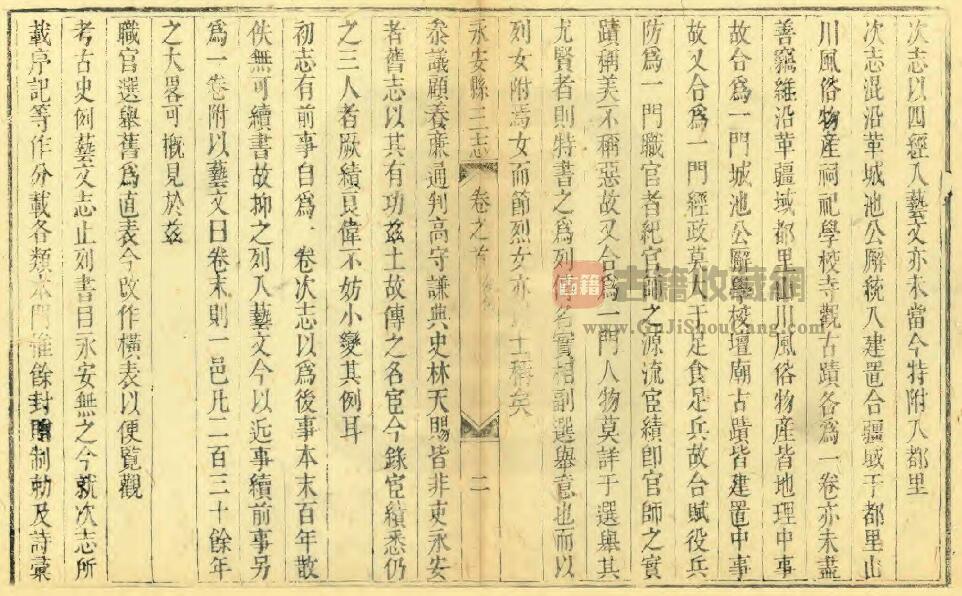 次志以四經入藝文亦未當今特附入都里
次志混沿革城池公廨稅入建置合疆域于都里山
川風俗物產祠祀學校寺觀古蹟各爲一卷亦未盡
善竊維沿革疆域都里山川風俗物產皆地理中事
故合爲一門城池公廨學校壇廟古蹟皆建置中事
故又合爲一門經政莫大于足食足兵故合賦役兵
防爲一門職官者紀官師之源流宦績即官師之實
蹟稱美不稱惡故又合爲一門人物莫詳于選舉其
尤賢者則特書之爲列傳名實相副選舉意也而以
列女附焉女而節烈女亦士稱矣
永安縣三志 卷之首 二
叅議顧養謙通判高守謙典史林天賜皆非吏永安
者舊志以其有功茲土故傳之名宦今錄宦績悉仍
之三人者厥績良偉不妨小變其例耳
初志有前事自爲一卷次志以爲後事本末百年散
佚無可續書故抑之列入藝文今以近事續前事另
爲一卷附以藝文曰卷末則一邑凡二百三十餘年
之大畧可概見於茲
職官選舉舊爲直表今改作橫表以便覽觀
考古史例藝文志止列書目永安無之今就次志所
載序記等作分載各類本門雜餘封贈制勅及詩彙
古籍
古籍收藏網
www.GuJiShouCang.com